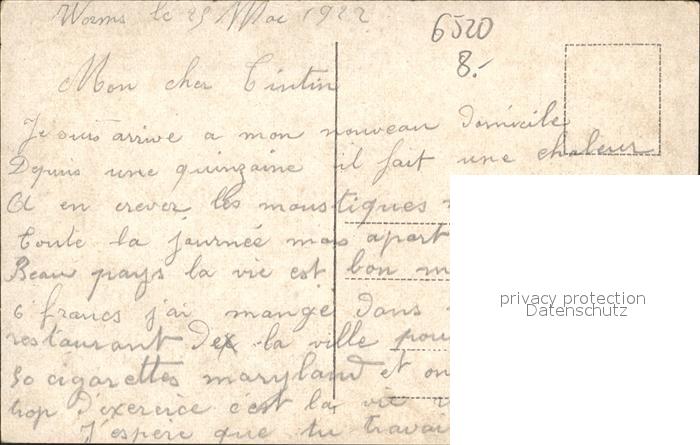 Worms le 25 Mai 1922
6520
8.-
Mon cher Tintin
Je suis arrive a mon nouveau domicile
Depuis une quinzaine il fait une chaleur
A en crever les moustiques
toute la journée mais apart
Beau pays la vie est bon m
6 francs j'ai mangé dans
restaurant de la ville pou
50 cigarettes maryland et on
trop d'exercice c'est la vie
J'espère que tu travai
privacy protection
Datenschutz